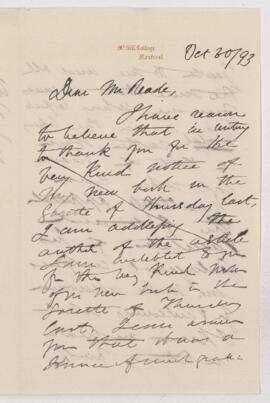 McGill College,
Montreal.
Oct 30/93
Dear Mr Reade,
I have reason
to believe that in writing
to thank you for the
very kind notice of
my new book in the
Gazette of Thursday last,
I am addressing the
author of the article
I am indebted to you
for the very kind notice
of my new book in the
Gazette of Thursday
last. I can assure
you that it was a
source of much